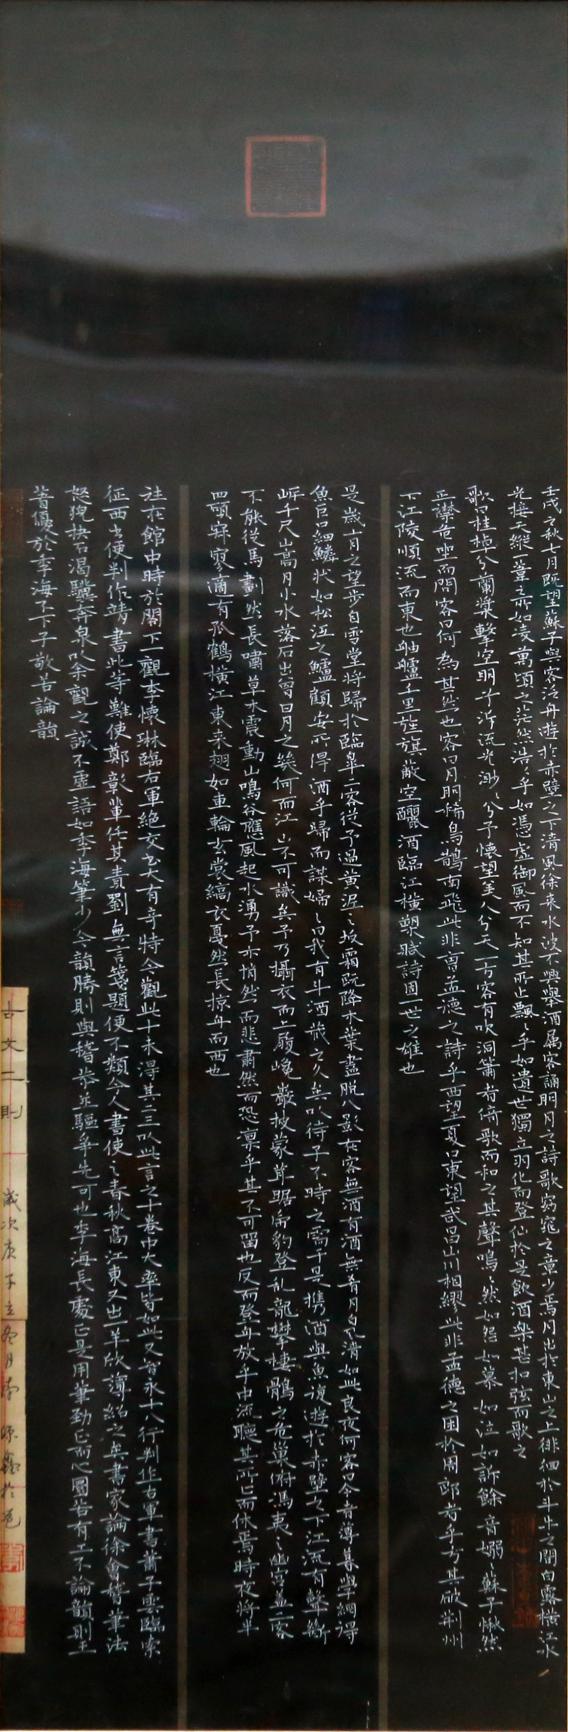 壬戌之秋七月既望蘇子與客泛舟遊於赤壁之下清風徐來水波不興舉酒屬客誦明月之詩歌窈窕之章少焉月出於東山之上徘徊於斗牛之間白露橫江水
光接天縱葦之所如凌萬頃之茫然浩〻乎如馮虛御風而不知其所止飄〻乎如遺世獨立羽化而登仙於是飲酒樂甚扣弦而歌之
歌曰桂棹兮蘭槳擊空明兮泝流光渺〻兮予懷望美人兮天一方客有吹洞簫者倚歌而和之其聲嗚〻然如怨如慕如泣如訴餘音嫋〻蘇子愀然
正襟危坐而問客曰何為其然也客曰月明星稀烏鵲南飛此非曹孟德之詩乎西望夏口東望武昌山川相繆此非孟德之困於周郎者乎方其破荊州
下江陵順流而東也舳艫千里旌旗蔽空釃酒臨江橫槊賦詩固一世之雄也
是歲十月之望步自雪堂將歸於臨皋二客從予過黃泥之坂霜露既降木葉盡脫人影在
客無酒有酒無肴月白風清如此良夜何客曰今者薄暮舉網得
魚巨口細鱗狀如松江之鱸顧安所得酒乎歸而謀婦〻曰我有斗酒藏之久矣以待子不時之需于是攜酒與魚復遊於赤壁之下江流有聲斷
岸千尺山高月小水落石出曾日月之幾何而江山不可識矣予乃攝衣而上履巉巖披蒙茸踞虎豹登虬龍攀棲鶻之危巢俯馮夷之幽宮蓋二客
不能從焉劃然長嘯草木震動山鳴谷應風起水湧予亦悄然而悲肅然而恐凜乎其不可留也反而登舟放乎中流聽其所止而休焉時夜將半
四顧寂寥適有孤鶴橫江東來翅如車輪玄裳縞衣戛然長掠舟而西也
往在館中時於閣下一觀李懷琳臨右軍絕交書大有奇特今觀此十未得其二三以此言之十卷中大率皆如此又會永十八行判作右軍書蕭子雲臨索
征西書便判作靖書此等難使鄭彰輩任其責到無言箋題便不類今人書使〻春秋高江東又出一羊欣薄紹之矣書家論徐會稽筆法
怒猊抉石渴驥奔泉以余觀之誠不虛語如季海筆少令韻勝則與稽恭並驅爭先可也季海長處正是用筆勁正而心圓若有工不論韻則王
著優於季海〻不下子敬若論韻
古文二則
歲次庚子